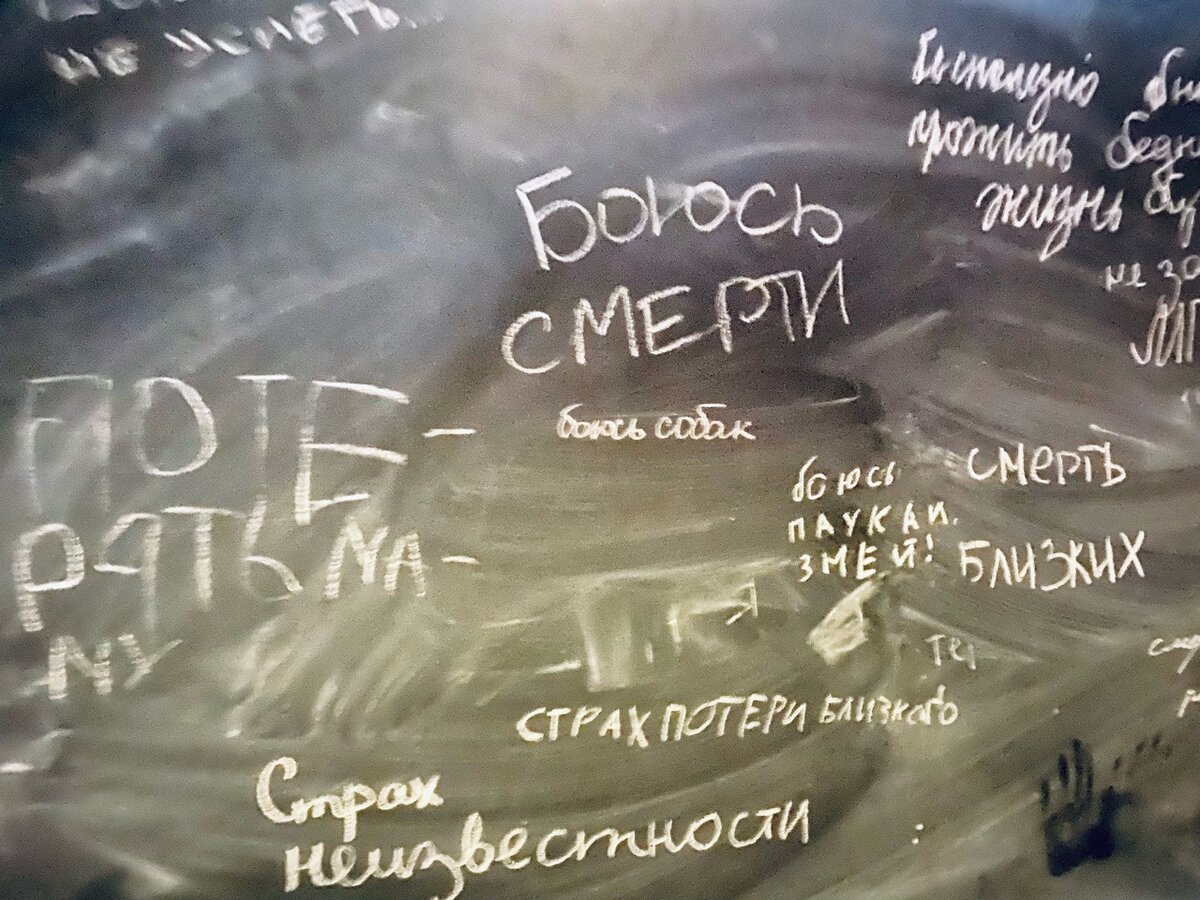 не успеть...
бесполезно
прожить
жизнь
не за
Боюсь
смерти
ПОТЕ-
РЯТЬ МА-
МУ
боюсь собак
боюсь
ПАУКАИ.
ЗМЕЙ!
смерть
БЛИЗКИХ
СТРАХ ПОТЕРИ БЛИЗКОГО
Страх
неизвестности